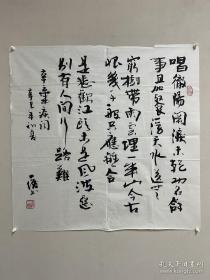 唱徹陽關淚未乾功名餘
事且加餐浮天水送无
窮樹帶雨雲埋一半山今古
恨幾千般只應離合
是悲歡江頭未是風波惡
別有人間行路難
辛棄疾詞